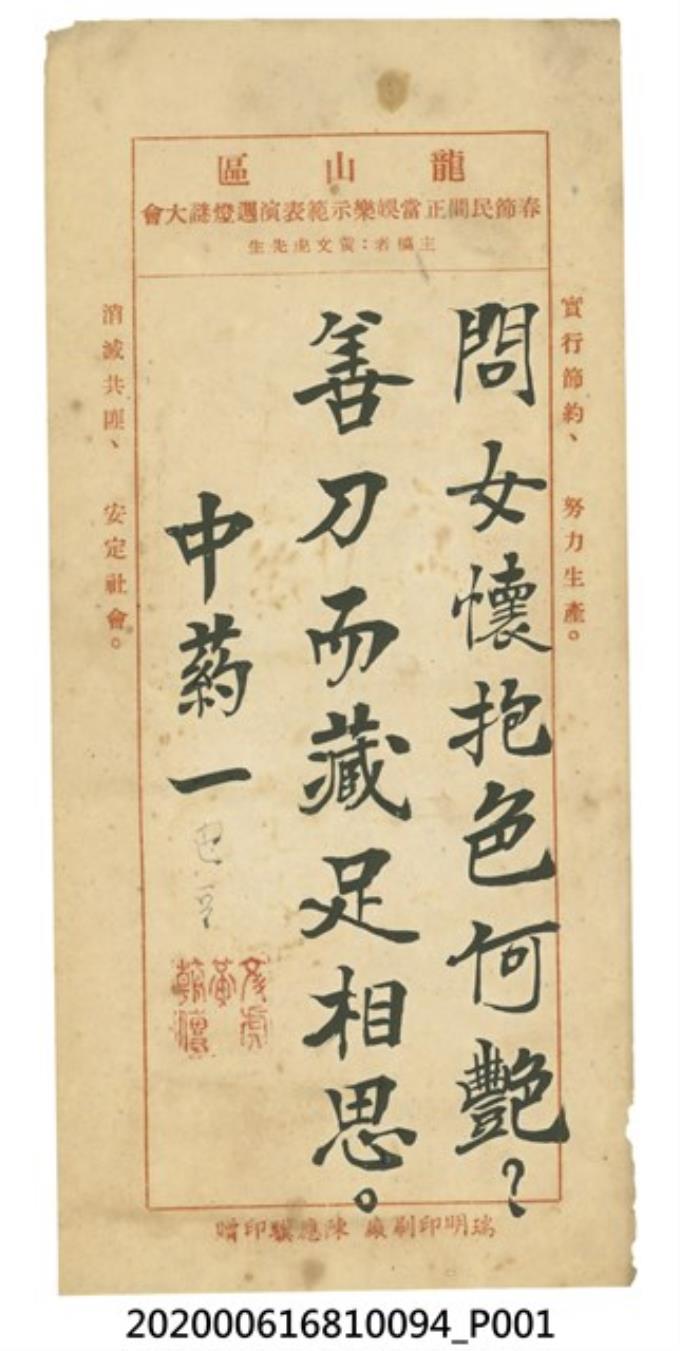 龍山區
春節民間正當娛樂示範表演迎燈謎大會
主稿者：黃文虎先生
實行節約、努力生產。
問女懷抱色何艷？
善刀而藏足相思。
中葯一
巴豆
消滅共匪、安定社會。
瑞明印刷廠 陳應騏印贈
202000616810094_P001